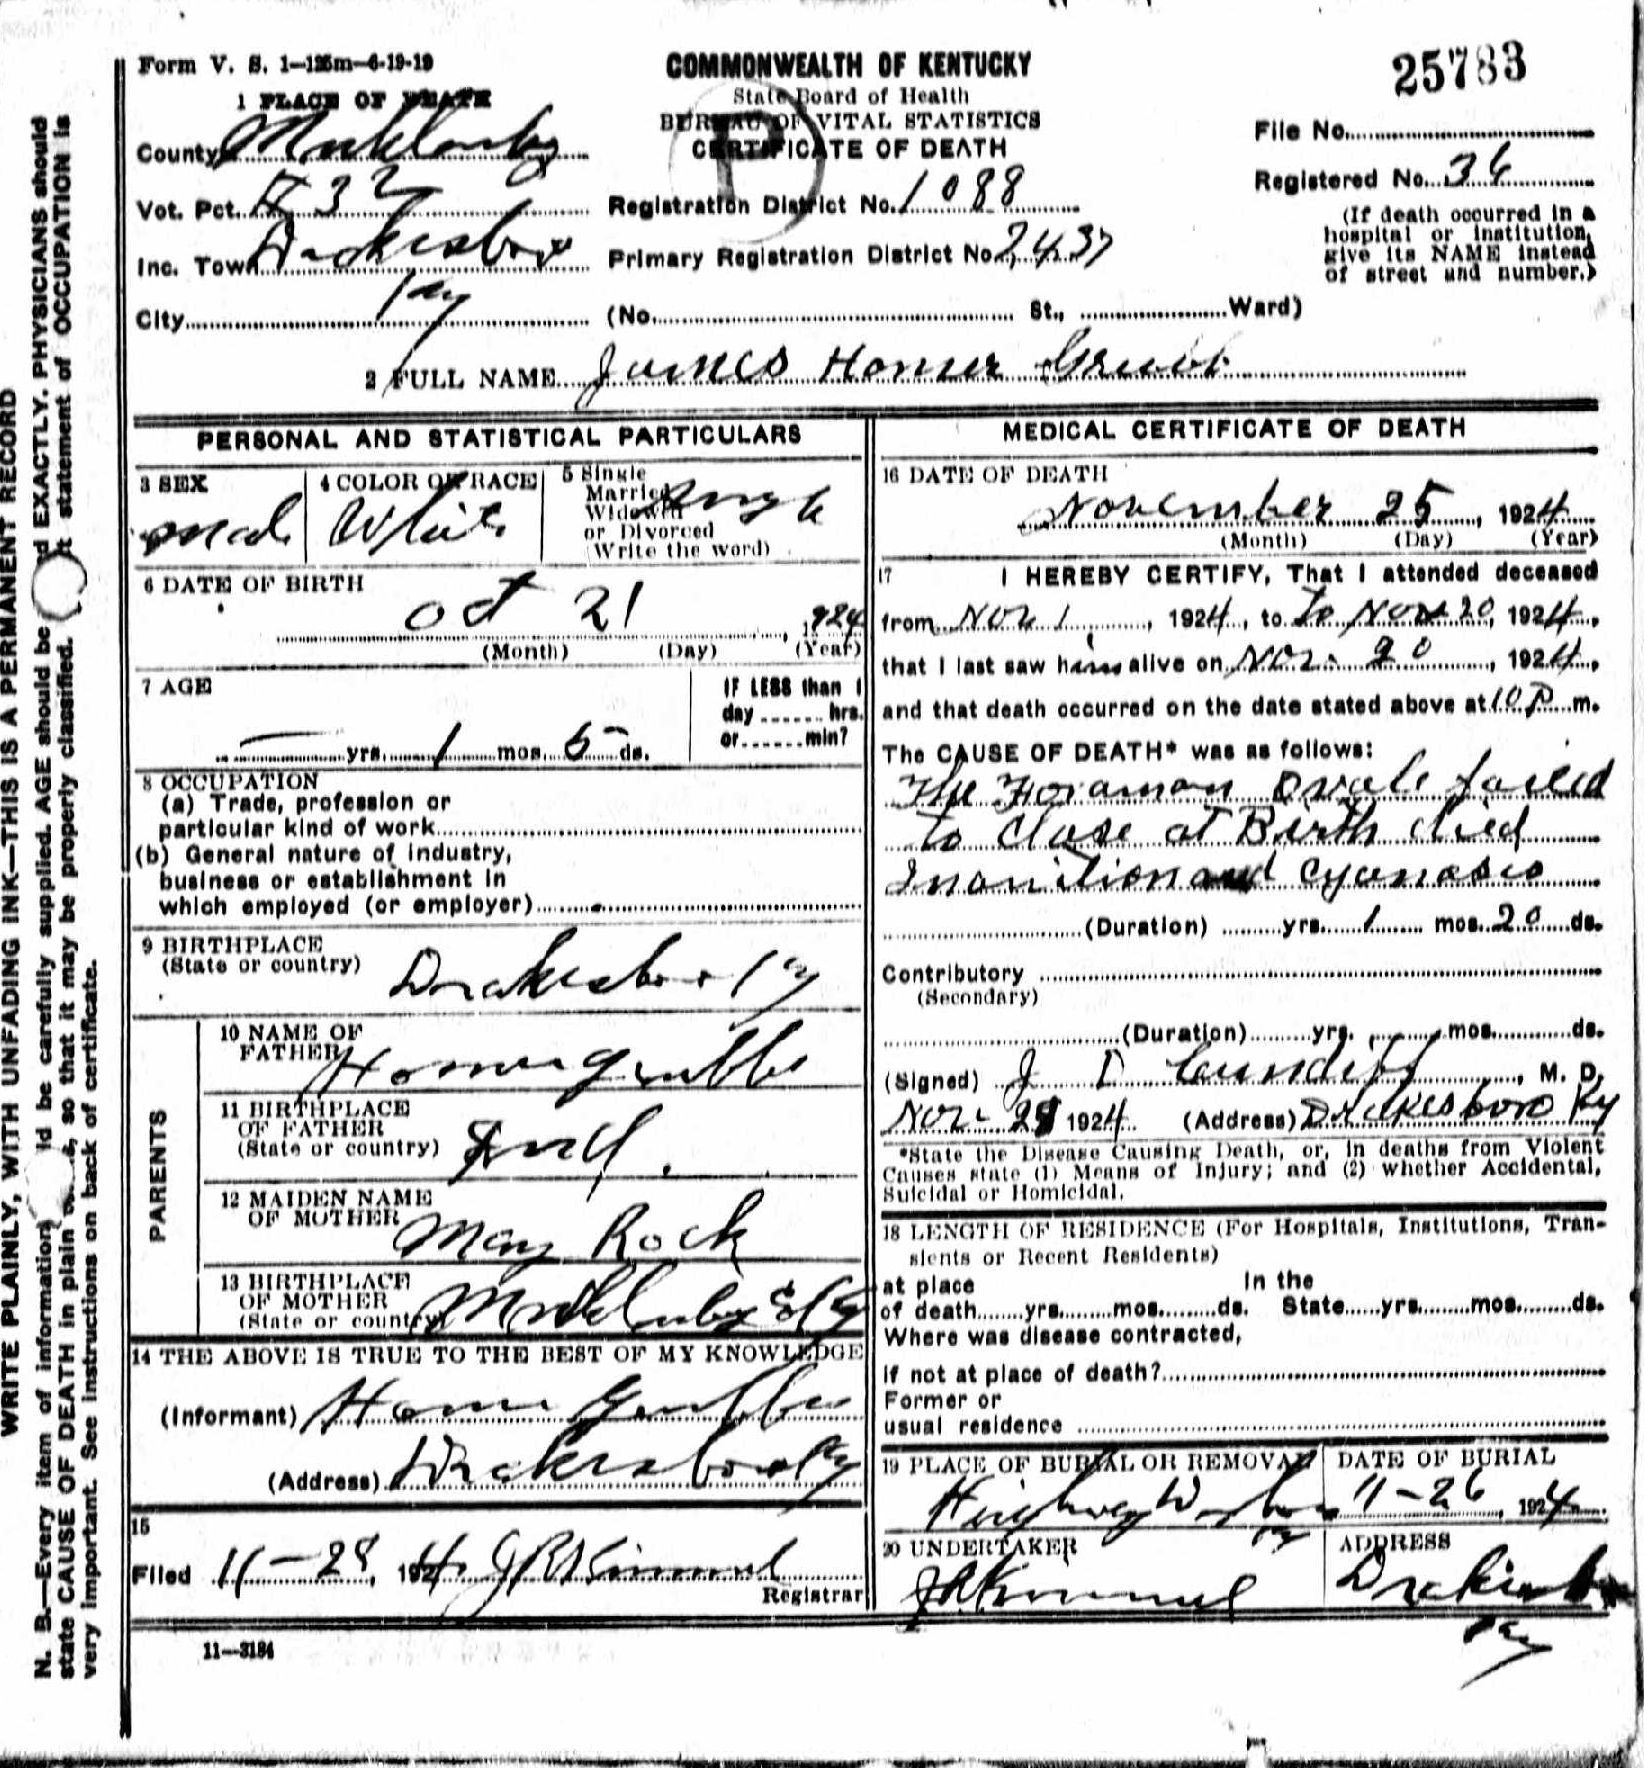 Form V. S. 1—125m—6-19-19
COMMONWEALTH OF KENTUCKY
State Board of Health
BUREAU OF VITAL STATISTICS
CERTIFICATE OF DEATH
25783
1 PLACE OF DEATH
County
Vot. Pct. 32
Inc. Town Drakesboro
City Ky
Registration District No. 1088
Primary Registration District No. 2437
(No. St., Ward)
File No.
Registered No. 36
(If death occurred in a
hospital or institution,
give its NAME instead
of street and number.)
2 FULL NAME James Homer Grubb
PERSONAL AND STATISTICAL PARTICULARS
3 SEX
4 COLOR OR RACE White
5 Single
Married
Widowed
or Divorced
(Write the word)
Single
6 DATE OF BIRTH
Oct 21, 1924
(Month) (Day) (Year)
7 AGE
yrs. 1 mos. 5 ds.
IF LESS than 1
day hrs.
or min?
8 OCCUPATION
(a) Trade, profession or
particular kind of work
(b) General nature of industry,
business or establishment in
which employed (or employer)
9 BIRTHPLACE
(State or country) Drakesboro Ky
PARENTS
10 NAME OF
FATHER Homer Grubbs
11 BIRTHPLACE
OF FATHER
(State or country)
12 MAIDEN NAME
OF MOTHER May Rock
13 BIRTHPLACE
OF MOTHER
(State or country) Co Ky
14 THE ABOVE IS TRUE TO THE BEST OF MY KNOWLEDGE
(Informant) Homer Grubbs
(Address) Drakesboro Ky
15
Filed 11-28, 1924 J R Kimmel
Registrar
11—3184
MEDICAL CERTIFICATE OF DEATH
16 DATE OF DEATH
November 25, 1924
(Month) (Day) (Year)
17 I HEREBY CERTIFY, That I attended deceased
from Nov 1, 1924, to To Nov 20, 1924,
that I last saw him alive on Nov. 20, 1924,
and that death occurred on the date stated above at 10 P m.
The CAUSE OF DEATH* was as follows:
The Foraman Ovale failed
to Close at Birth died
Inanition and Cyanosis
(Duration) yrs. 1 mos. 20 ds.
Contributory
(Secondary)
(Duration) yrs. mos. ds.
(Signed) J D Cundiff, M. D.
Nov- 1924 (Address) Drakesboro Ky
*State the Disease Causing Death, or, in deaths from Violent
Causes state (1) Means of Injury; and (2) whether Accidental,
Suicidal or Homicidal.
18 LENGTH OF RESIDENCE (For Hospitals, Institutions, Tran-
sients or Recent Residents)
at place In the
of death yrs. mos. ds. State yrs. mos. ds.
Where was disease contracted,
If not at place of death?
Former or
usual residence
19 PLACE OF BURIAL OR REMOVAL
Ky
DATE OF BURIAL
11-26, 1924
20 UNDERTAKER
J R Kimmel
ADDRESS
Ky
WRITE PLAINLY, WITH UNFADING INK—THIS IS A PERMANENT RECORD
N. B.—Every item of information should be carefully supplied. AGE should be stated EXACTLY. PHYSICIANS should
state CAUSE OF DEATH in plain terms, so that it may be properly classified. Exact statement of OCCUPATION is
very important. See instructions on back of certificate.